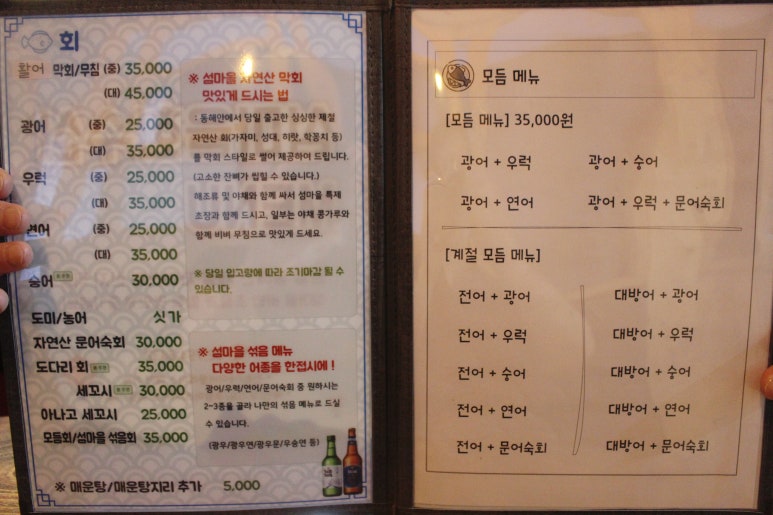 회
활어 막회/무침 (중) 35,000
(대) 45,000
광어 (중) 25,000
(대) 35,000
우럭 (중) 25,000
(대) 35,000
연어 (중) 25,000
(대) 35,000
숭어 30,000
도미/농어 싯가
자연산 문어숙회 30,000
도다리 회 35,000
세꼬시 30,000
아나고 세꼬시 25,000
모듬회/섬마을 섞음회 35,000
※ 매운탕/매운탕지리 추가 5,000
※ 섬마을 자연산 막회
맛있게 드시는 법
: 동해안에서 당일 출고한 싱싱한 제철
자연산 회(가자미, 성대, 히랏, 학꽁치 등)
를 막회 스타일로 썰어 제공하여 드립니다.
(고소한 잔뼈가 씹힐 수 있습니다.)
해조류 및 야채와 함께 싸서 섬마을 특제
초장과 함께 드시고, 일부는 야채 콩가루와
함께 비벼 무침으로 맛있게 드세요.
※ 당일 입고량에 따라 조기마감 될 수
있습니다.
※ 섬마을 섞음 메뉴
다양한 어종을 한접시에 !
광어/우럭/연어/문어숙회 중 원하시는
2~3종을 골라 나만의 섞음 메뉴로 드실
수 있습니다.
(광우/광우연/광우문/우숭연 등)
모듬 메뉴
[모듬 메뉴] 35,000원
광어 + 우럭 광어 + 숭어
광어 + 연어 광어 + 우럭 + 문어숙회
[계절 모듬 메뉴]
전어 + 광어 대방어 + 광어
전어 + 우럭 대방어 + 우럭
전어 + 숭어 대방어 + 숭어
전어 + 연어 대방어 + 연어
전어 + 문어숙회 대방어 + 문어숙회